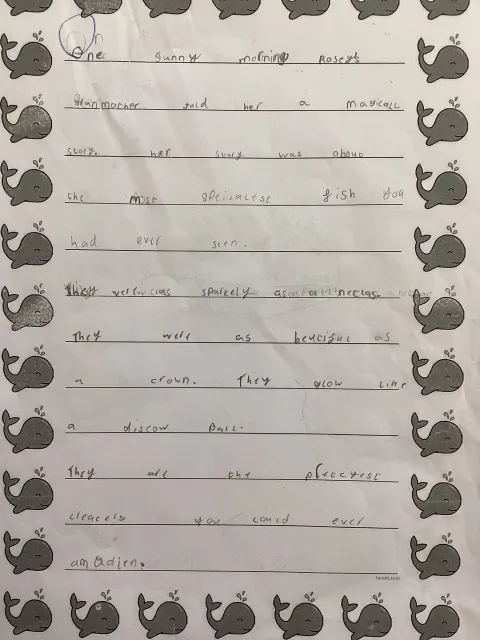 One sunny morning Rosey's
Granmother told her a magicall
story. her story was about
the most speicalest fish you
had ever seen.
They were sparkely as neclas.
They were as beutiful as
a crown. They glow like
a discow Ball.
They are the prettyest
creacers you could ever
amadjen.
twinkl.com